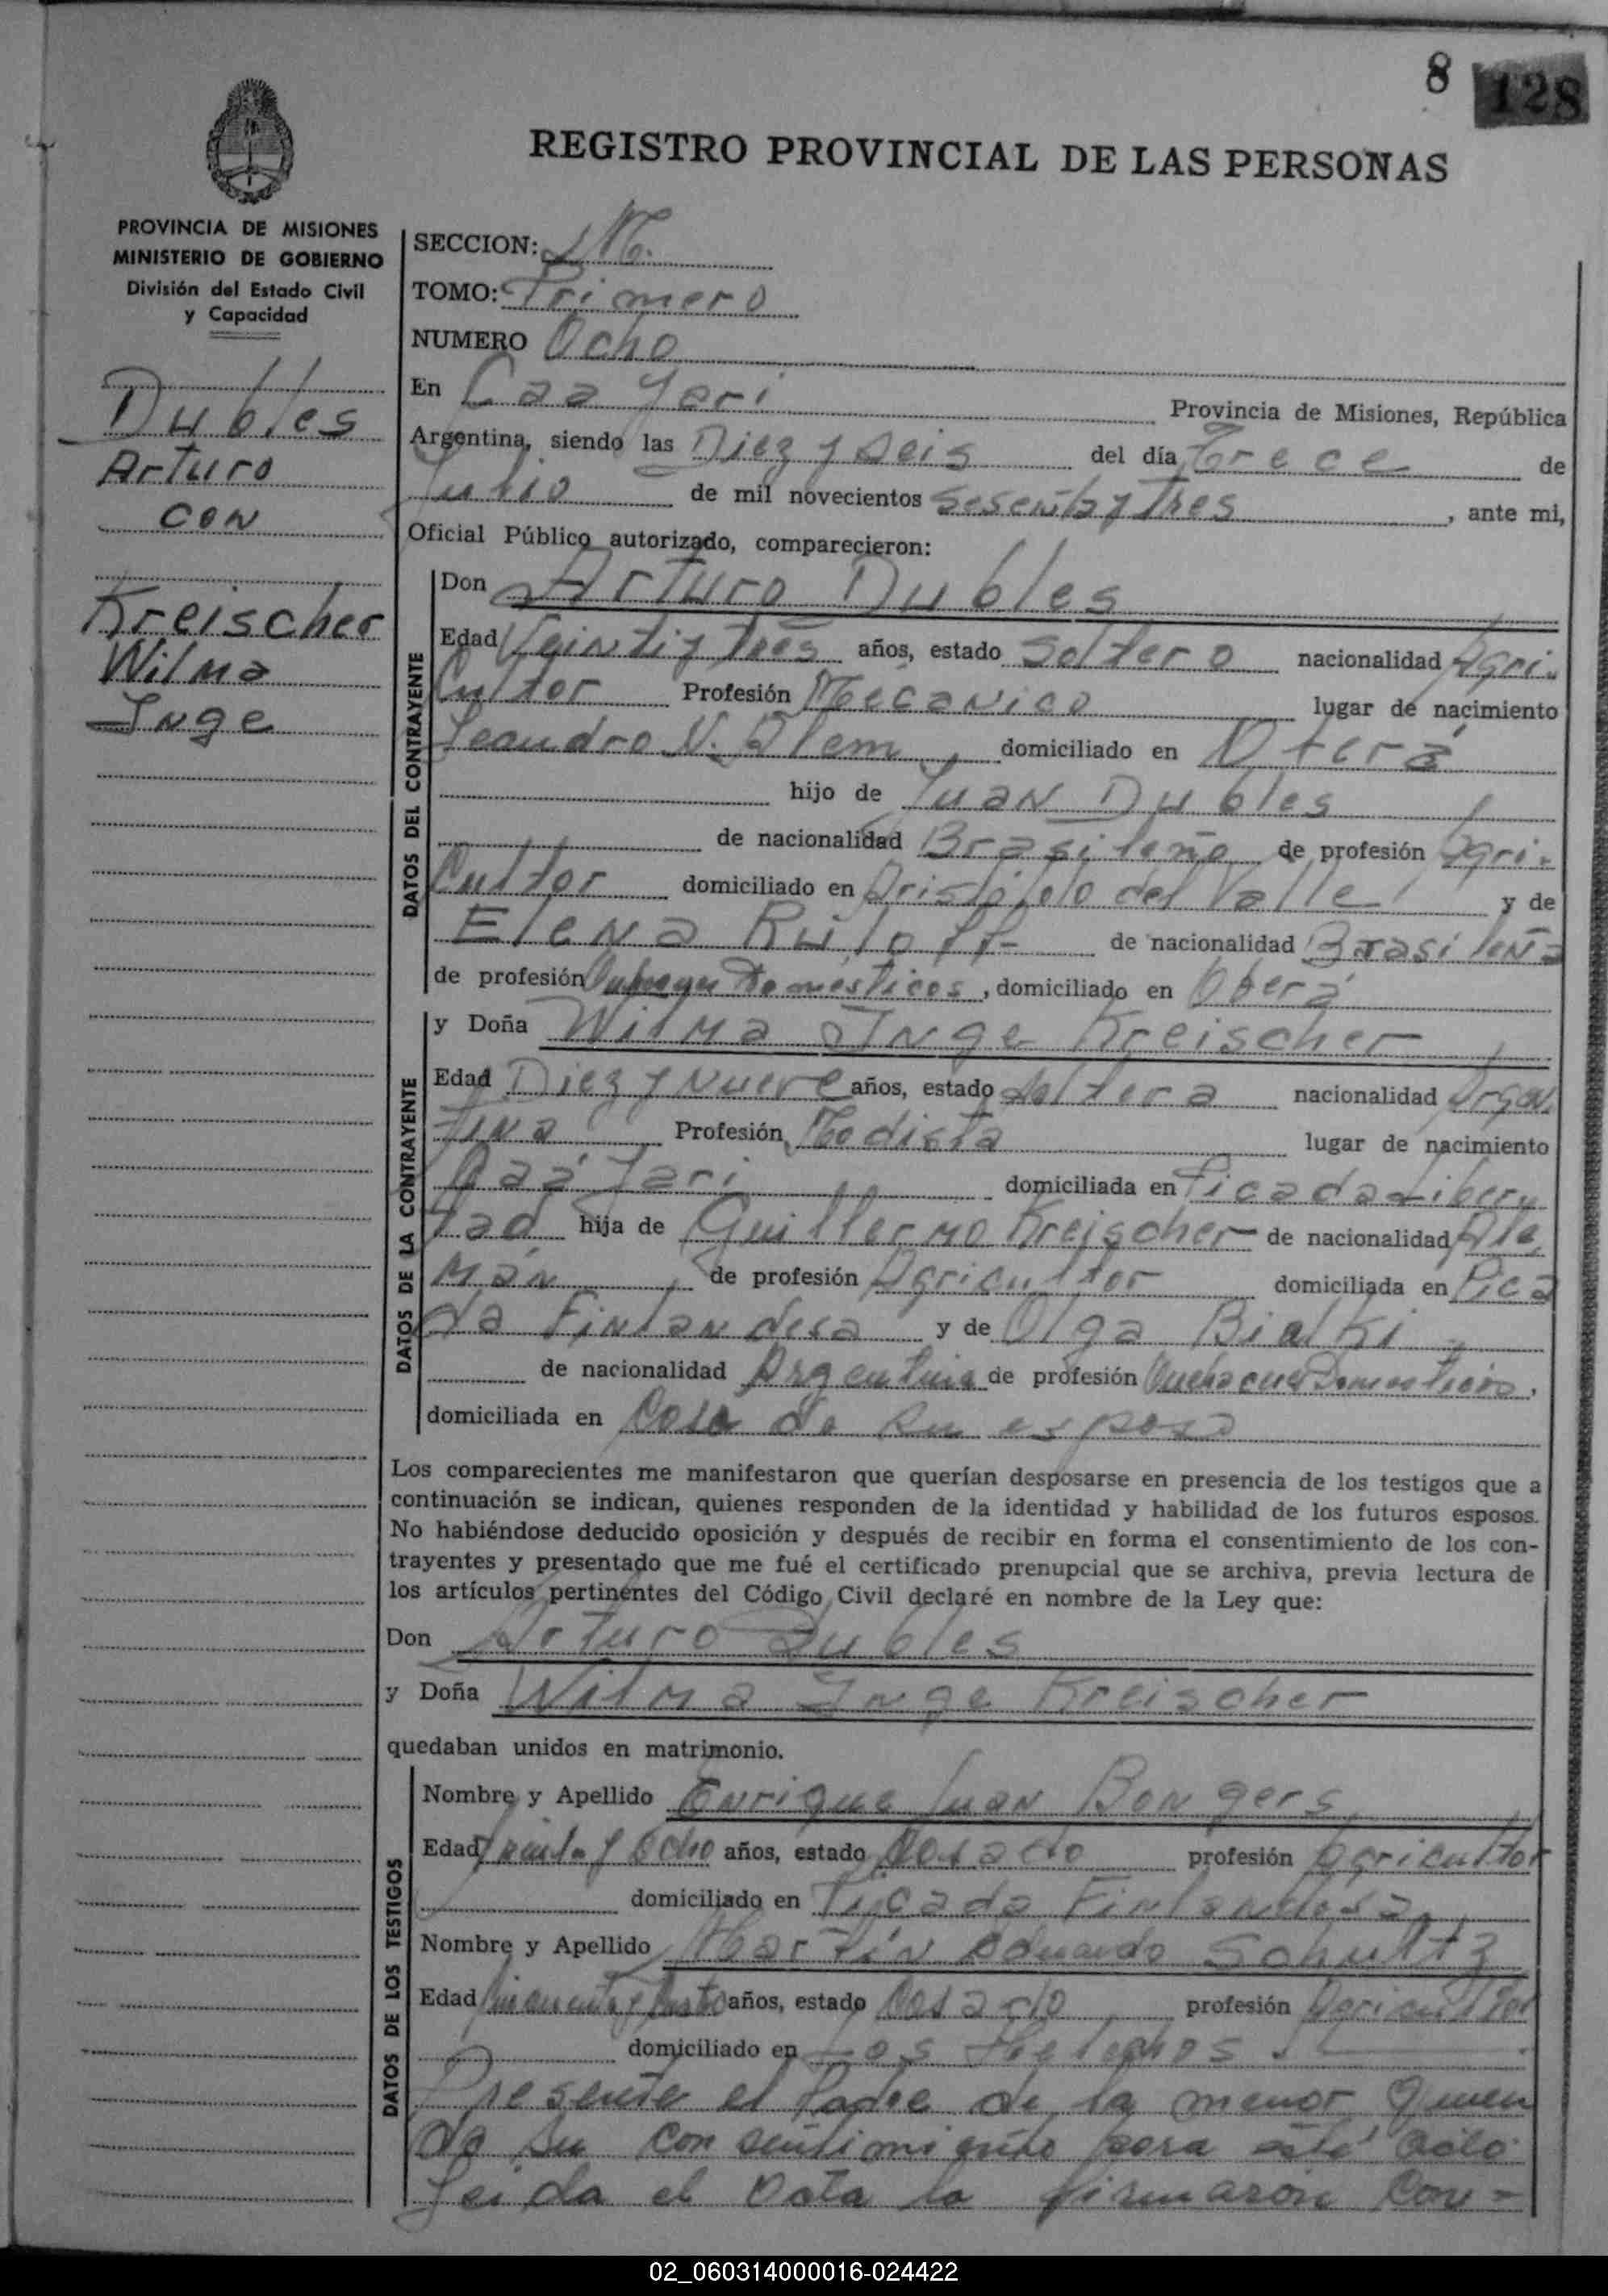 8 128
REGISTRO PROVINCIAL DE LAS PERSONAS
PROVINCIA DE MISIONES
MINISTERIO DE GOBIERNO
División del Estado Civil
y Capacidad
Dubles
Arturo
con
Kreischer
Wilma
Inge
SECCION:
TOMO: Primero
NUMERO Ocho
En Caa Yari Provincia de Misiones, República
Argentina, siendo las Diez y seis del día Trece de
Julio de mil novecientos sesenta y Tres, ante mi,
Oficial Público autorizado, comparecieron:
DATOS DEL CONTRAYENTE
Don Arturo Dubles
Edad Veinti y Tres años, estado Soltero nacionalidad Agri-
cultor Profesión Mecanico lugar de nacimiento
Leandro N. Alem, domiciliado en Oberá
hijo de Juan Dubles
de nacionalidad Brasileño de profesión Agri-
cultor domiciliado en Aristóbolo del Valle y de
Elena Ruloff de nacionalidad Brasileña
de profesión Domesticos, domiciliado en Oberá
DATOS DE LA CONTRAYENTE
y Doña Wilma Inge Kreischer
Edad Diez y Nueve años, estado soltera nacionalidad Argen
tina Profesión Modista lugar de nacimiento
Caá Yari domiciliada en Picada Liber
tad hija de Guillermo Kreischer de nacionalidad Ale
mán de profesión Agricultor domiciliada en Pica
da Finlandesa y de Olga Bialki
de nacionalidad Argentina de profesión Quehaceres Domesticos,
domiciliada en Casa de su esposo
Los comparecientes me manifestaron que querían desposarse en presencia de los testigos que a
continuación se indican, quienes responden de la identidad y habilidad de los futuros esposos.
No habiéndose deducido oposición y después de recibir en forma el consentimiento de los con-
trayentes y presentado que me fué el certificado prenupcial que se archiva, previa lectura de
los artículos pertinentes del Código Civil declaré en nombre de la Ley que:
Don Arturo Dubles
y Doña Wilma Inge Kreischer
quedaban unidos en matrimonio.
DATOS DE LOS TESTIGOS
Nombre y Apellido Enrique Juan Bongers
Edad Treinta y Ocho años, estado Casado profesión Agricultor
domiciliado en Picada Finlandesa
Nombre y Apellido Martín Eduardo Schultz
Edad años, estado Casado profesión Agricultor
domiciliado en Los Helechos.
Presente el Padre de la menor quien
da su consentimiento para este acto
Leida el acta la firmaron con-
02_060314000016-024422